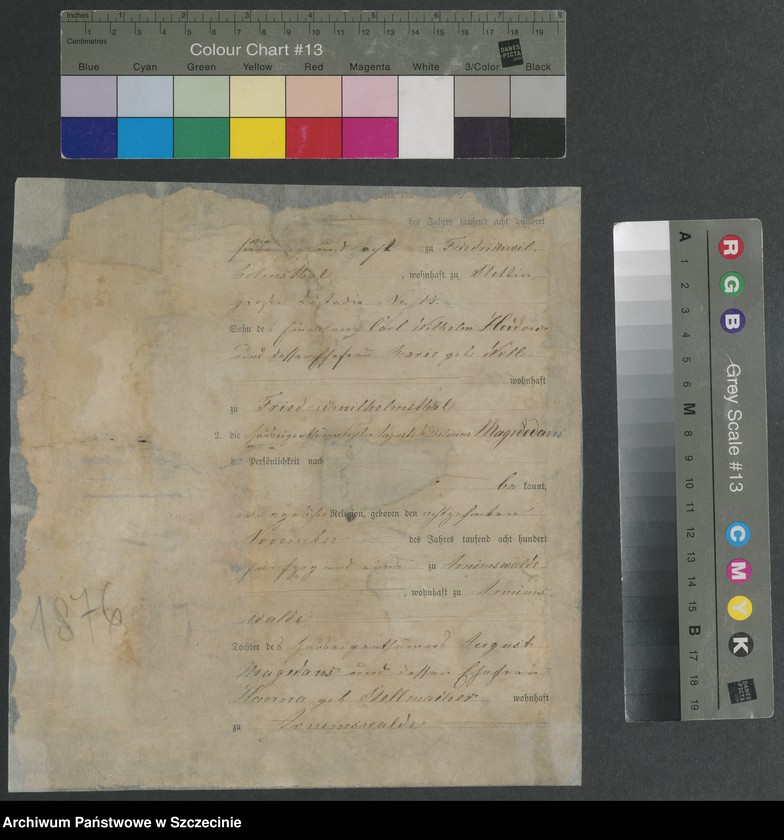 Inches 1 2 3 4 5 6 7 8
1 2 3 4 5 6 7 8 9 10 11 12 13 14 15 16 17 18 19
Centimetres
Colour Chart #13
DANES PICTA
Blue Cyan Green Yellow Red Magenta White 3/Color Black
des Jahres tausend acht hundert
und acht zu Friedrichwil-
helmsthal, wohnhaft zu Stettin
große Lastadie No. 13.
Sohn des Carl Wilhelm
und dessen Ehefrau Marie geb.
wohnhaft
zu Friedrichwilhelmsthal
2. die Auguste Wilhelmine Magedans
der Persönlichkeit nach
be kannt,
Religion, geboren den achtzehnten
November des Jahres tausend acht hundert
fünfzig und eins zu Arnimswalde
, wohnhaft zu Arnims
walde
Tochter des Hauseigenthümers August
Magedans und dessen Ehefrau
Hanna geb. Stellmacher wohnhaft
zu Arnimswalde
1876
A 1 2 3 4 5 6 M 8 9 10 11 12 13 14 15 B 17 18 19
R G B
Grey Scale #13
C M Y K
DANES PICTA
Archiwum Państwowe w Szczecinie